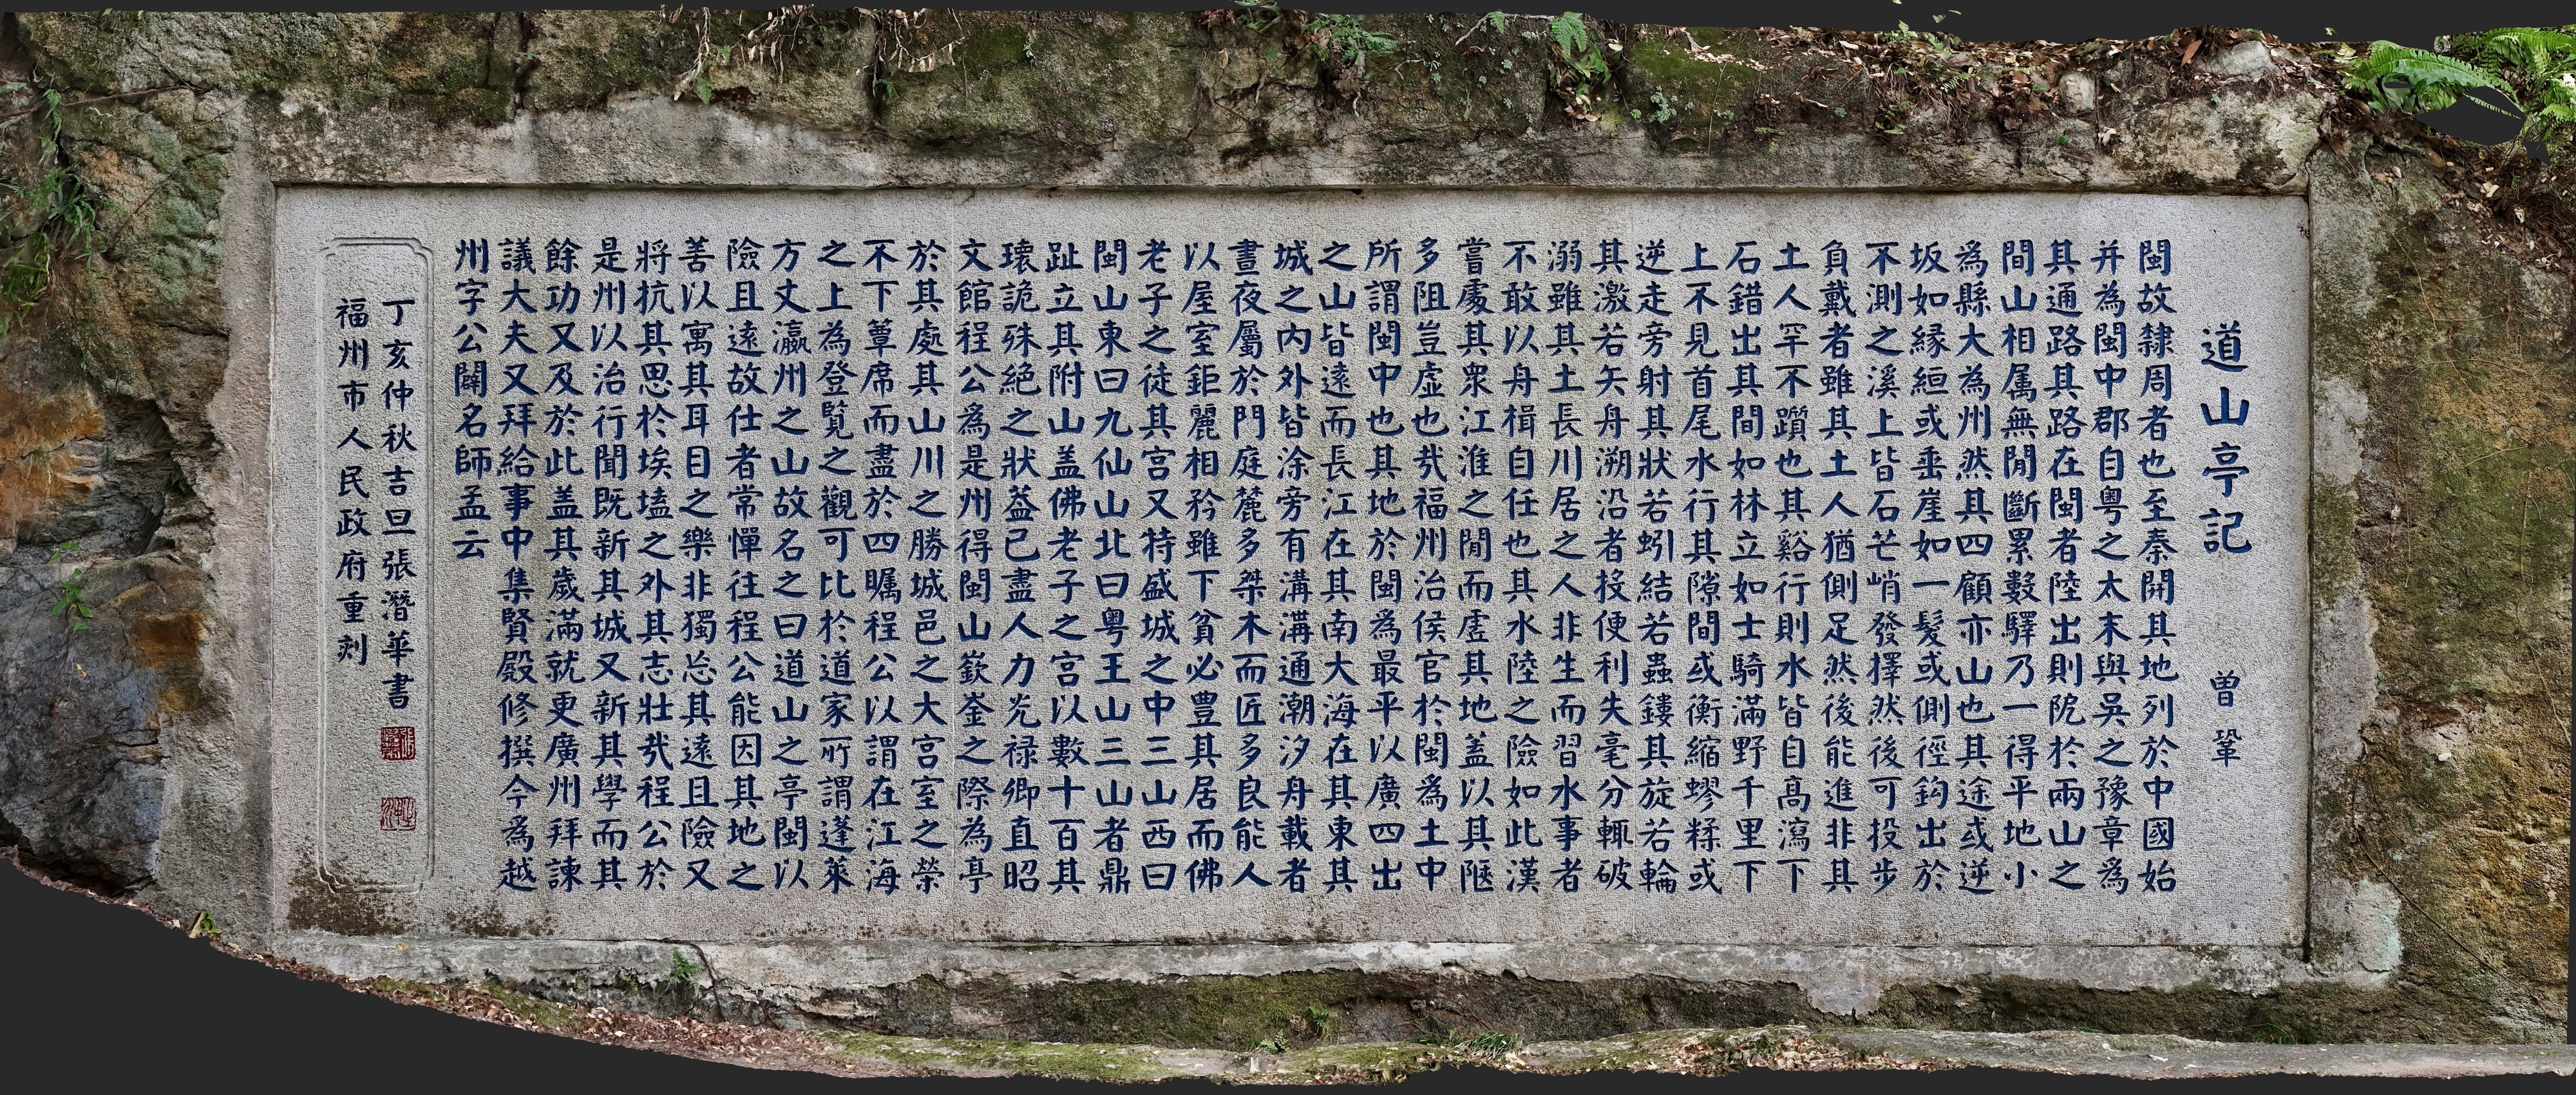 道山亭記 曾鞏
閩故隸周者也至秦開其地列於中國始
并為閩中郡自粵之太末與吳之豫章為
其通路其路在閩者陸出則阸於兩山之
間山相属無間斷累數驛乃一得平地小
為縣大為州然其四顧亦山也其途或逆
坂如緣絙或垂崖如一髮或側徑鈎出於
不測之溪上皆石芒峭發擇然後可投步
負戴者雖其土人猶側足然後能進非其
土人罕不躓也其谿行則水皆自高瀉下
石錯出其間如林立如士騎滿野千里下
上不見首尾水行其隙間或衡縮蟉糅或
逆走旁射其狀若蚓結若蟲鏤其旋若輪
其激若矢舟溯沿者投便利失毫分輒破
溺雖其土長川居之人非生而習水事者
不敢以舟楫自任也其水陸之險如此漢
嘗處其眾江淮之間而虛其地盖以其陿
多阻豈虛也哉福州治侯官於閩為土中
所謂閩中也其地於閩為最平以廣四出
之山皆遠而長江在其南大海在其東其
城之內外皆涂旁有溝溝通潮汐舟載者
晝夜屬於門庭麓多桀木而匠多良能人
以屋室鉅麗相矜雖下貧必豐其居而佛
老子之徒其宮又特盛城之中三山西曰
閩山東曰九仙山北曰粵王山三山者鼎
趾立其附山盖佛老子之宮以數十百其
瓌詭殊絕之狀蓋已盡人力光祿卿直昭
文館程公為是州得閩山嶔崟之際為亭
於其處其山川之勝城邑之大宮室之榮
不下簟席而盡於四矚程公以謂在江海
之上為登覽之觀可比於道家所謂蓬萊
方丈瀛州之山故名之曰道山之亭閩以
險且遠故仕者常憚往程公能因其地之
善以寓其耳目之樂非獨忘其遠且險又
將抗其思於埃壒之外其志壯哉程公於
是州以治行聞既新其城又新其學而其
餘功又及於此盖其歲滿就更廣州拜諫
議大夫又拜給事中集賢殿修撰今為越
州字公闢名師孟云
丁亥仲秋吉旦張潛華書
福州市人民政府重刻